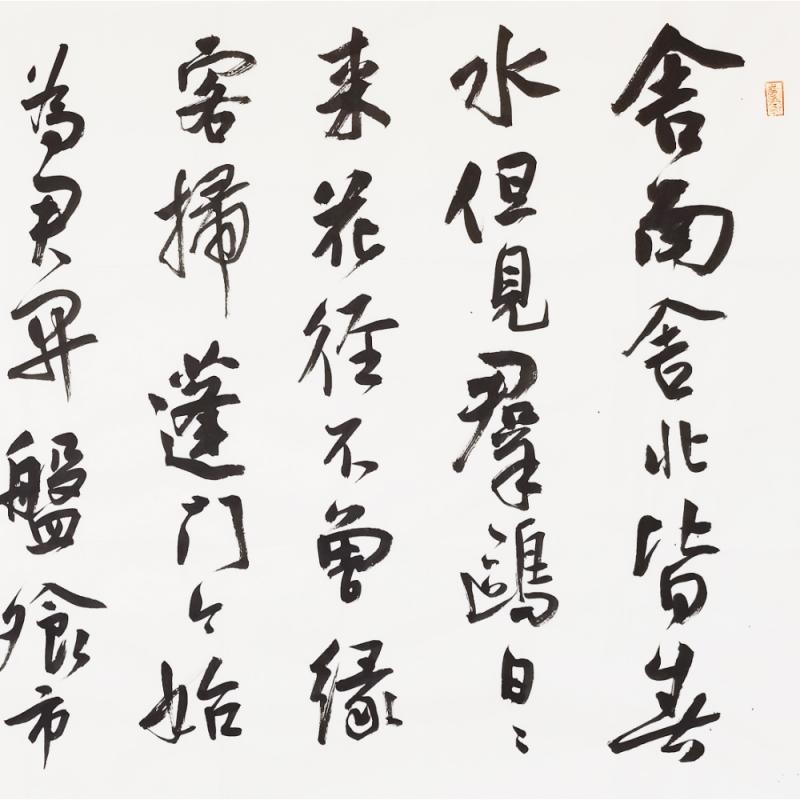 舍南舍北皆春
水但見羣鷗日〻
来花徑不曾緣
客掃蓬門今始
為君開盤飧市